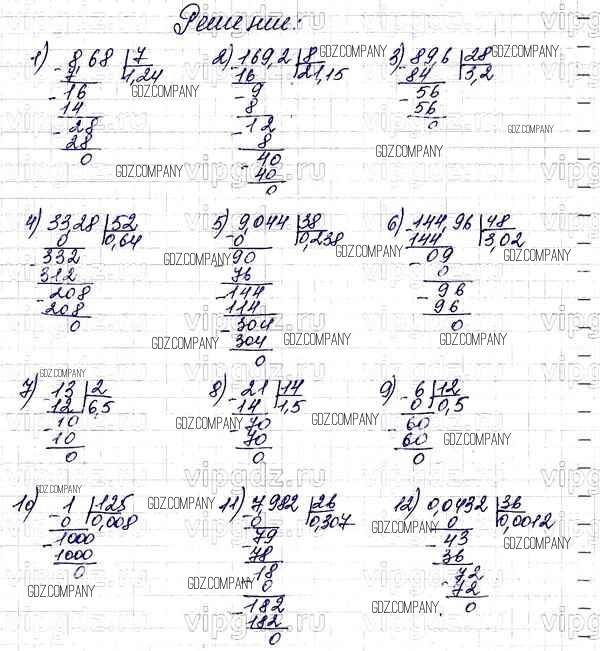 Решение:
1) 8,68 | 7 2) 169,2 | 8 3) 89,6 | 28
7 1,24 16 21,15 84 3,2
- 16 - 9 - 56
14 8 56
- 28 - 12 0
28 8
0 - 40
40
0
4) 33,28 | 52 5) 9,044 | 38 6) 144,96 | 48
0 0,64 0 0,238 144 3,02
- 332 - 90 - 09
312 76 0
- 208 - 144 - 96
208 114 96
0 - 304 0
304
0
7) 13 | 2 8) 21 | 14 9) 6 | 12
12 6,5 14 1,5 0 0,5
- 10 - 70 - 60
10 70 60
0 0 0
10) 1 | 125 11) 7,982 | 26 12) 0,0432 | 36
0 0,008 0 0,307 0 0,0012
- 1000 - 79 - 43
1000 78 36
0 - 18 - 72
0 72
- 182 0
182
0
GDZ.COMPANY
vipgdz.ru